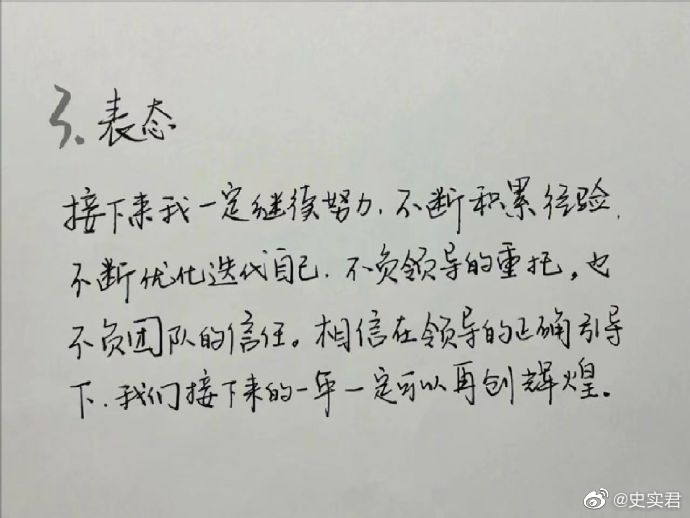 3、表态
接下来我一定继续努力，不断积累经验，
不断优化迭代自己，不负领导的重托，也
不负团队的信任。相信在领导的正确引导
下，我们接下来的一年一定可以再创辉煌。
@史实君